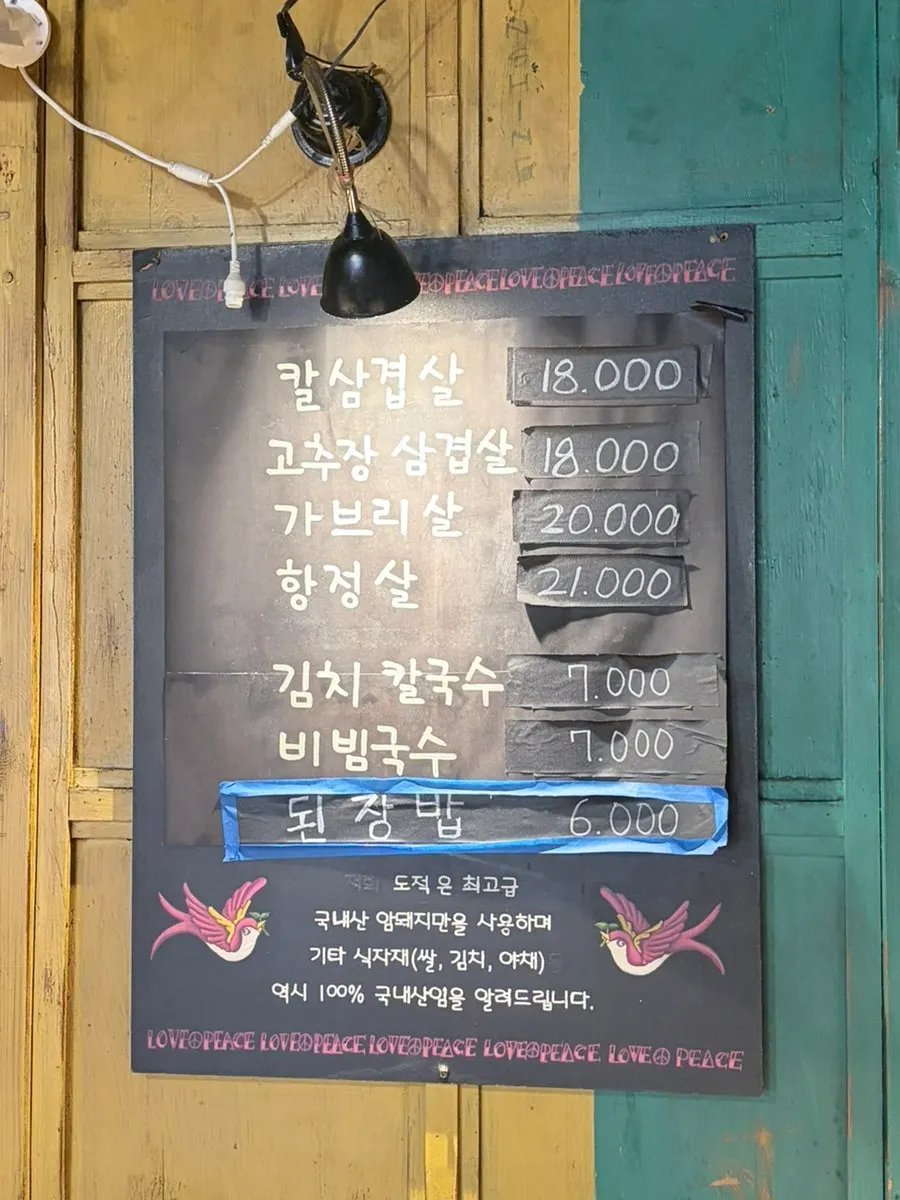 LOVE☮PEACE LOVE☮PEACE LOVE☮PEACE LOVE☮PEACE
칼삼겹살 18.000
고추장 삼겹살 18.000
가브리살 20.000
항정살 21.000
김치 칼국수 7.000
비빔국수 7.000
된장밥 6.000
도적은 최고급
국내산 암돼지만을 사용하며
기타 식자재(쌀, 김치, 야채)
역시 100% 국내산임을 알려드립니다.
LOVE☮PEACE LOVE☮PEACE LOVE☮PEACE LOVE☮PEACE LOVE☮PEACE